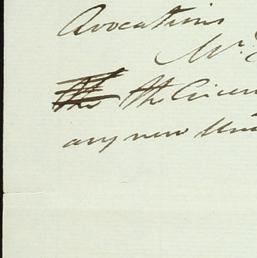 Avocations
Mr.
the the Circu
any new Un